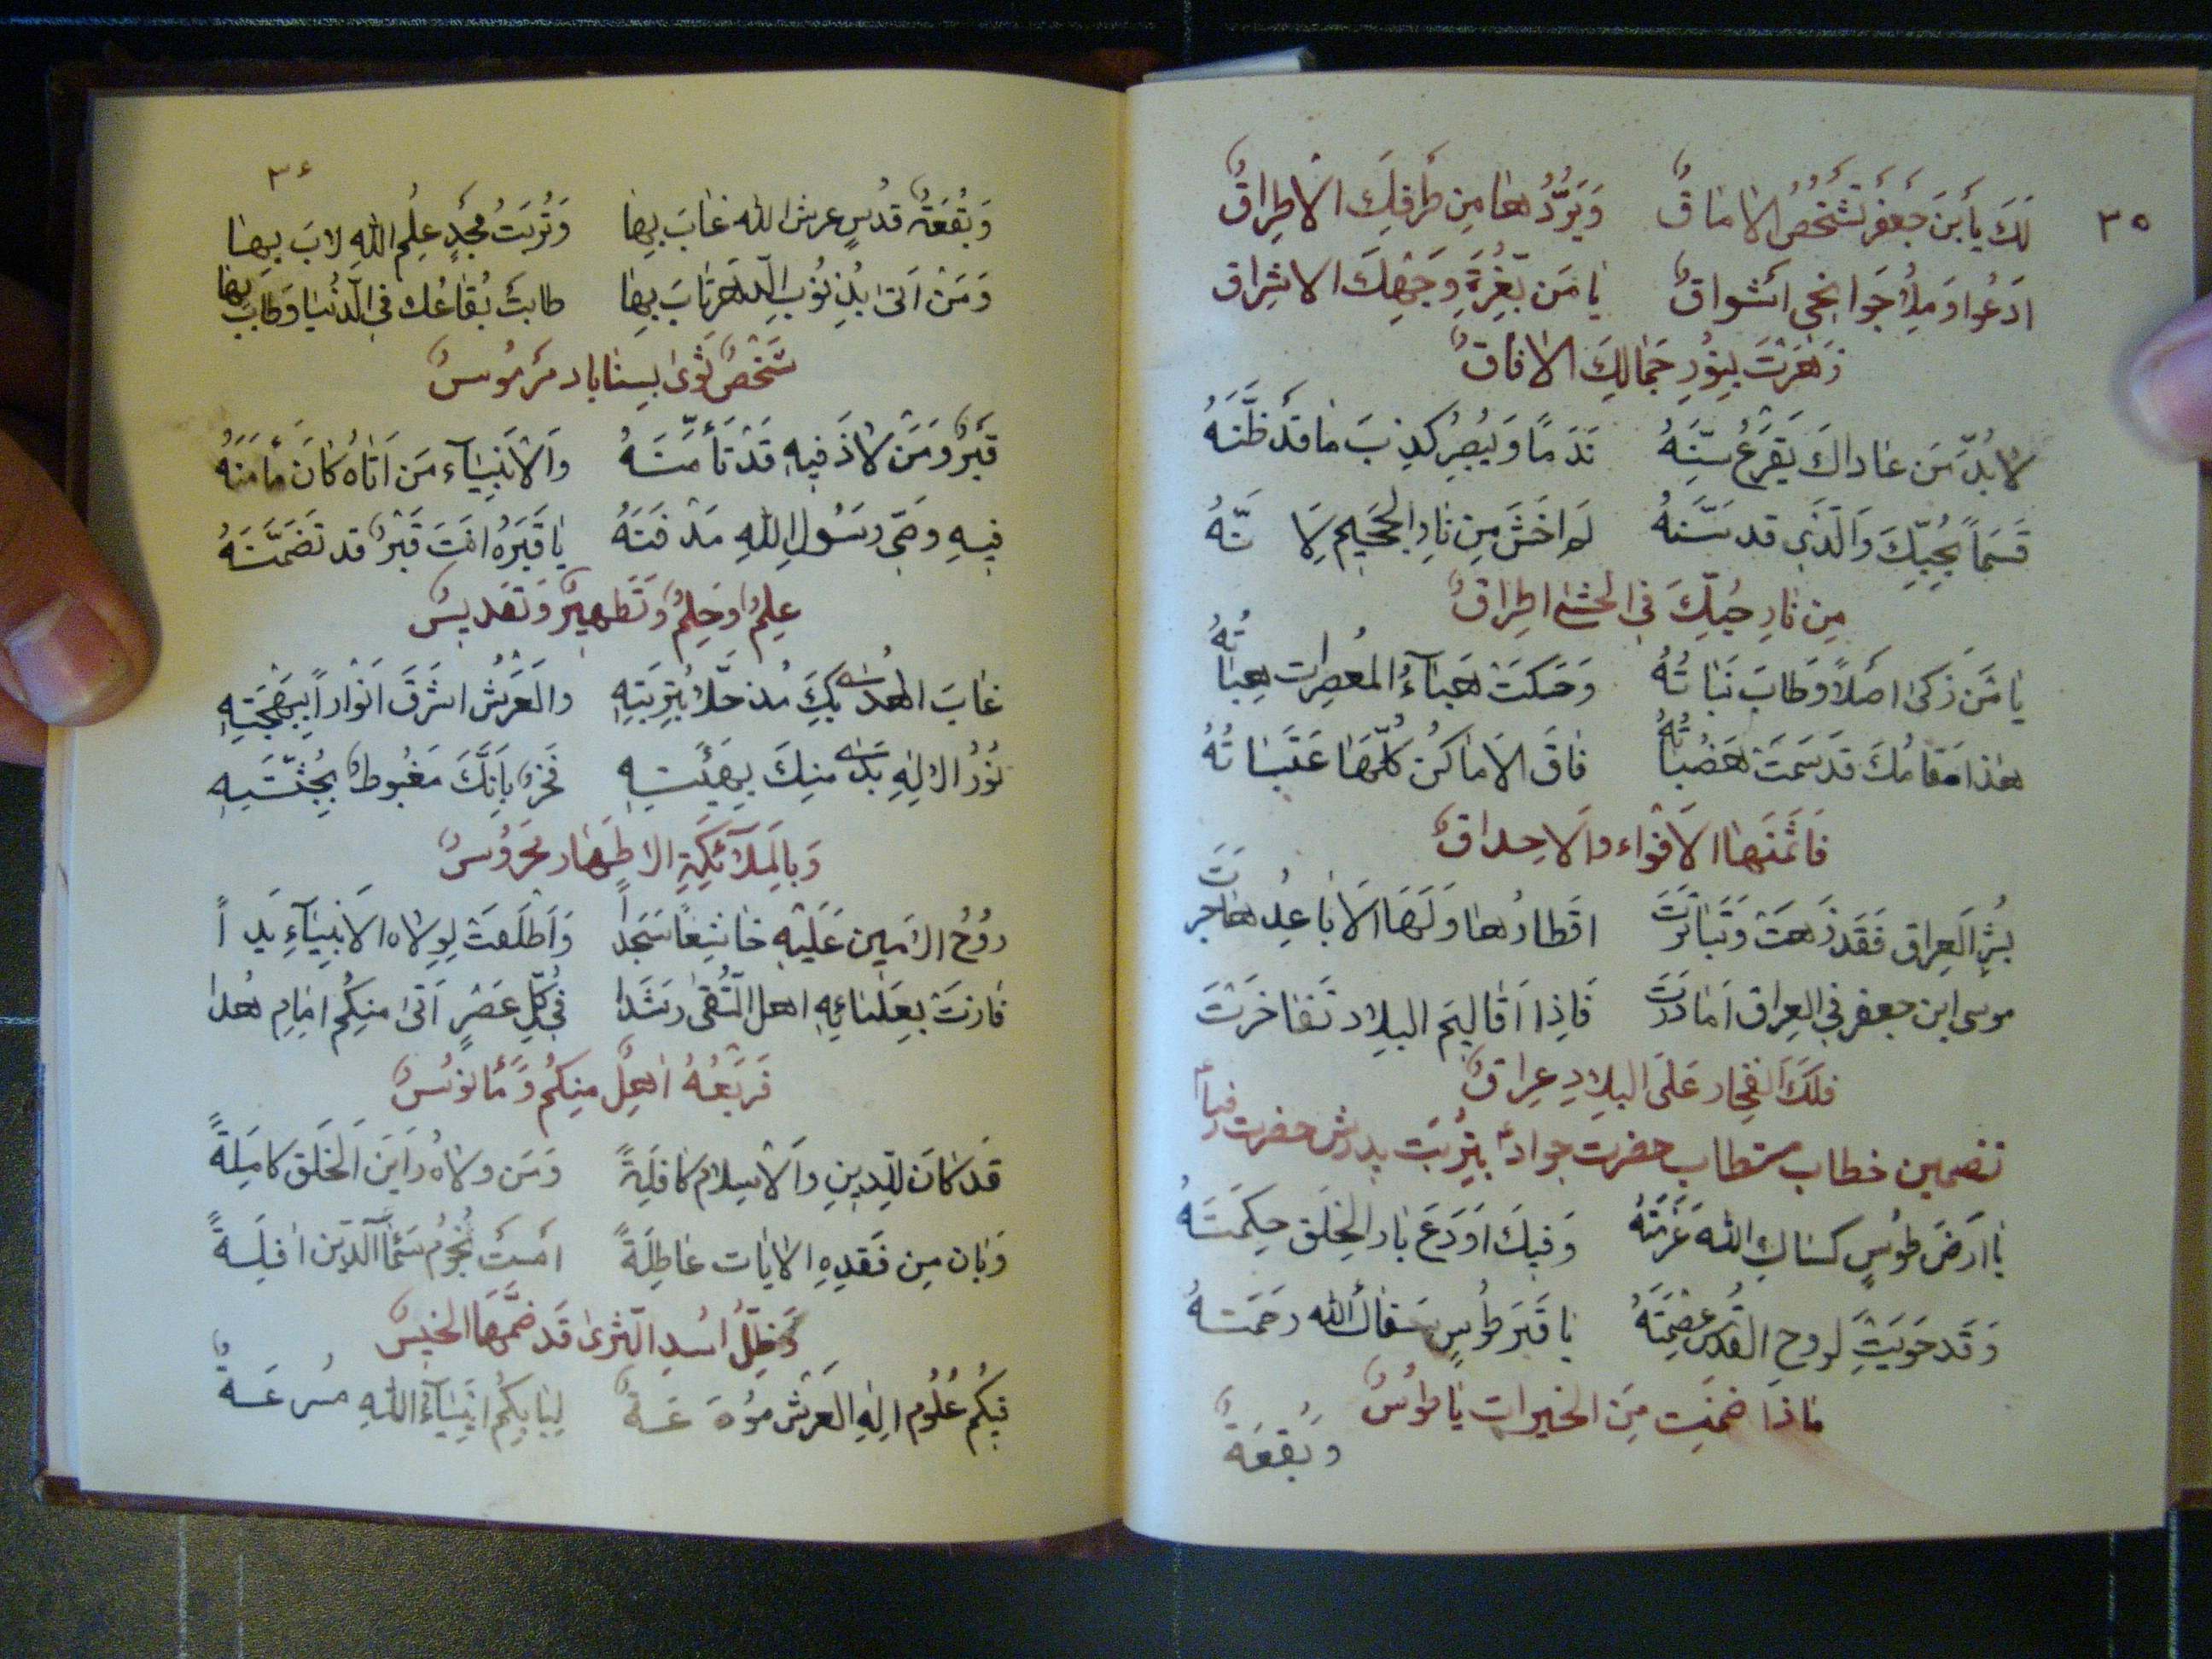 ٣٥
لَكَ يَا بْنَ جَعْفَرَ تَشْخَصُ الاٰمَاقُ وَيَرُدُّهٰا مِن طَرفِكِ الاِطراقُ
اَدعُوا وَ مِلأُ جَوانِحى اَشواقٌ يٰا مَن بِغُرَّةِ وَجهِكَ الاشراق
زَهَرَتْ بِنُورِ جَمٰالِكَ الاٰفاقُ
لا بُدَّ مَن عاداكَ يَقرَعُ سِنَّهُ نَدَمًا وَ يُبصِرُ كذِبَ مٰا قَد ظَنَّهُ
قَسَماً بِحُبِّكَ وَالَّذى قد سَنَّهُ لَم اَخشَ مِن نٰارِ الجحيمِ لِاَ نّهُ
مِن نٰارِ حُبِّكَ فى الحَشٰى اِطراقُ
يٰا مَن زَكىٰ اصلاً وَ طابَ نَباتُهُ وَحَكَت هَباءُ المُعصِرات هِبٰاتُهُ
هٰذا مَقامُكَ قَد سَمَت هَضُبٰاتُهُ فٰاقَ الاَماكنَ كُلَّهٰا عَتَبٰاتُهُ
فَاثمَنَهٰا الاَفوٰاء والاَحداقُ
بُشرَ العِراق فَقَد زَهت وَتَبٰاشَرَت اقطارُها وَ لَهَا الاَباعِدُ هٰاجَرَت
موسى ابن جعفر فى العراق اَمٰا دَرَت فَاِذا اَقاليمَ البِلاد تَفٰاخَرَت
فلَكَ الفخار عَلَى البِلادِ عِراقُ
تضمين خطاب مستطاب حضرت جواد ع بتربت پدرش حضرت رضا ع
يٰا اَرضَ طُوسٍ كسٰاكِ اللّٰه عَزَّتَهُ وَ فيكَ اَودَعَ بٰار الخَلقِ حِكمَتَهُ
وَ قَد حَوَيتِ لِروحِ القُدسِ عِصمَتَهُ يٰا قَبرَ طُوسٍ سَقاكَ اللّٰه رحمَتهُ
مٰاذا ضمنتِ مِنَ الخَيرات يٰا طُوسُ
وَ بُقعَةُ
٣۶
وَ بُقعَةُ قدُسٍ عرش اللّٰه غٰابَ بِهٰا وَ تُربَتُ مجدٍ عِلمِ اللّٰهِ لابَ بِهٰا
وَ مَن اَتىٰ بِذِنُوبِ الدَّهر تٰابَ بِهٰا طابت بُقاعُك فى الدُّنيٰا وَ طابَ بِهٰا
شَخصٌ ثَوىٰ بسِنٰاباد مَرمُوسٌ
قَبرٌ وَ مَن لاذَ فيهِ قَدْ تَأَمَّنَهُ وَالاَنبياء مَن اَتاهُ كانَ مَأمَنَهُ
فيهِ وصَىّ رسُولِ اللّٰهِ مَدفَنَهُ يٰا قَبرَهُ انتَ قَبرٌ قد تَضَمَّنَهُ
عِلمٌ وَ حِلمٌ وَ تَطهيرٌ وَ تَقديسٌ
غٰابَ الهُدىٰ بِكَ مُذ حَلّا بِتُربَتِهِ والعَرشُ اَشرَقَ اَنواراً بِبَهجَتِهِ
نُورُ الالٰهِ بَدىٰ منِكَ بِهَيئَتِهِ فَخرٌ بِاَنَّكَ مَغبُوطٌ بِجُثَّتِهِ
وَ بِالمَلٰآئكةِ الاَطهار محَروُسٌ
روُحُ الاَمين عَلَيهِ خاشِعًا سَجَداً وَاَطلَعَت لِوِلاه الاَنبيآءِ يَداً
فازتْ بِعَليٰائهِ اهل التُّقىٰ رشَدا فى كُلِّ عَصرٍ اَتىٰ منِكُم اِمٰامِ هُدا
فَرَبعُهُ اٰهِلٌ منِكُم وَ مَأنوُسٌ
قَد كانَ لِلدّينِ وَالاسلامِ كافِلَةً وَ مَن ولاهُ راَينَ الخَلق كامِلَةً
وَ بانَ مِن فَقدِهِ الايٰات عاطِلَةً اَمسَت نُجومُ سَمآءِ الدّين اٰفِلَةً
وَ ظِلُّ اُسدِ الثَّرىٰ قَد ضَمَّهَا الخيسُ
فيكُم عُلُوم اِلٰهِ العَرش موُدَعَةٌ لِبٰابِكُم انبيآءُ اللّٰهِ مُسرعَةٌ